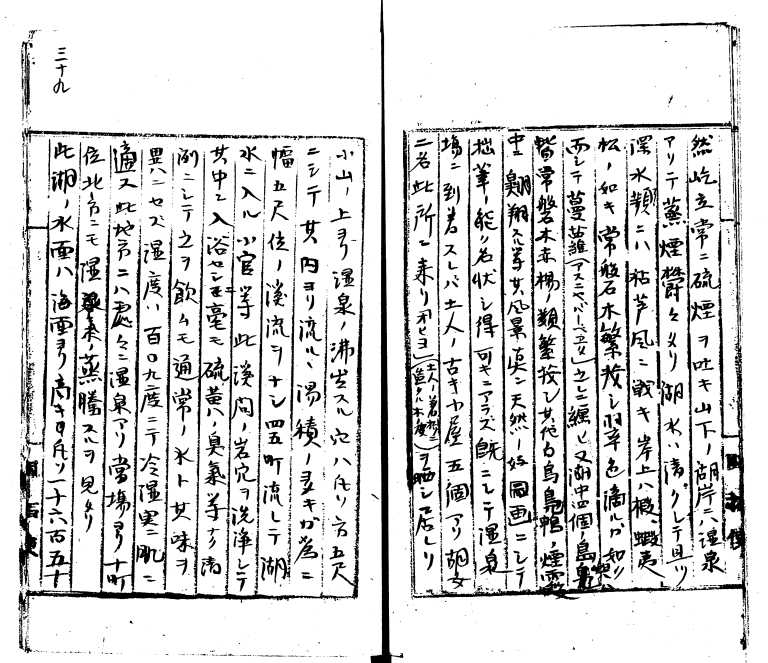 然屹立常ニ硫煙ヲ吐キ山下ノ湖岸ニハ温泉
アリテ蒸煙欝々タリ湖水ハ清クシテ且ツ
深水瀕ニハ枯芦風ニ戦キ岸上ハ椴、蝦夷
松ノ如キ常盤石木繁茂シ翠色滴ルガ如シ
而シテ蔓蘿 之ニ纏ヒ又湖中四個ノ島嶼
皆常磐木赤楊ノ類繁茂シ其他白鳥鳧鴨ノ煙霞
中ニ翺翔スル等其風景真ニ天然ノ好図画ニシテ
拙筆ノ能ク名状シ得可キニアラズ既ニシテ温泉
場ニ到着スレバ土人ノ古キ小屋五個アリ胡女
二名此所ニ来リオヒヨ ヲ晒シ居レリ
三十九
小山ノ上ヨリ温泉ノ沸出スル穴ハ凡ソ方五尺
ニシテ其内ヨリ流ルヽ湯積ノ多キガ為ニ
幅五尺位ノ渓流ヲナシ四五町流レテ湖
水ニ入ル小官等此渓間ノ岩穴ヲ洗浄シテ
其中ニ入浴セシモ毫モ硫黄ノ臭氣等ナク清
冽ニシテ之ヲ飲ムモ通常ノ水ト其味ヲ
異ニセズ温度ハ百〇九度ニテ冷温実ニ肌ニ
適ス此地方ニハ処々ニ温泉アリ当場ヨリ十町
位北方ニモ温泉ノ蒸騰スルヲ見タリ
此湖ノ水面ハ海面ヨリ高キ凡ソ一千六百五十